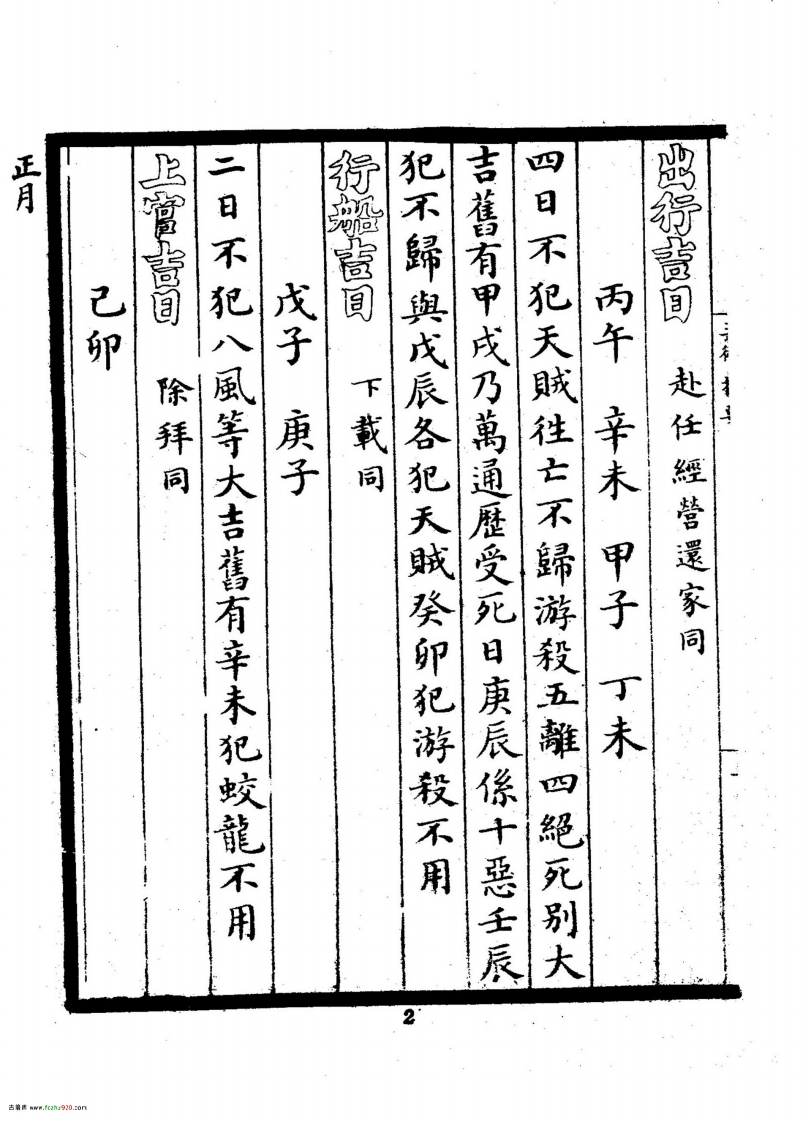 出行吉日 赴任經營還家同
丙午 辛未 甲子 丁未
四日不犯天賊往亡不歸游殺五離四絕死別大
吉舊有甲戌乃萬通歷受死日庚辰係十惡壬辰
犯不歸與戊辰各犯天賊癸卯犯游殺不用
行船吉日 下載同
戊子 庚子
二日不犯八風等大吉舊有辛未犯蛟龍不用
上官吉日 除拜同
己卯
正月
2
古易库 www.fczhu920.com